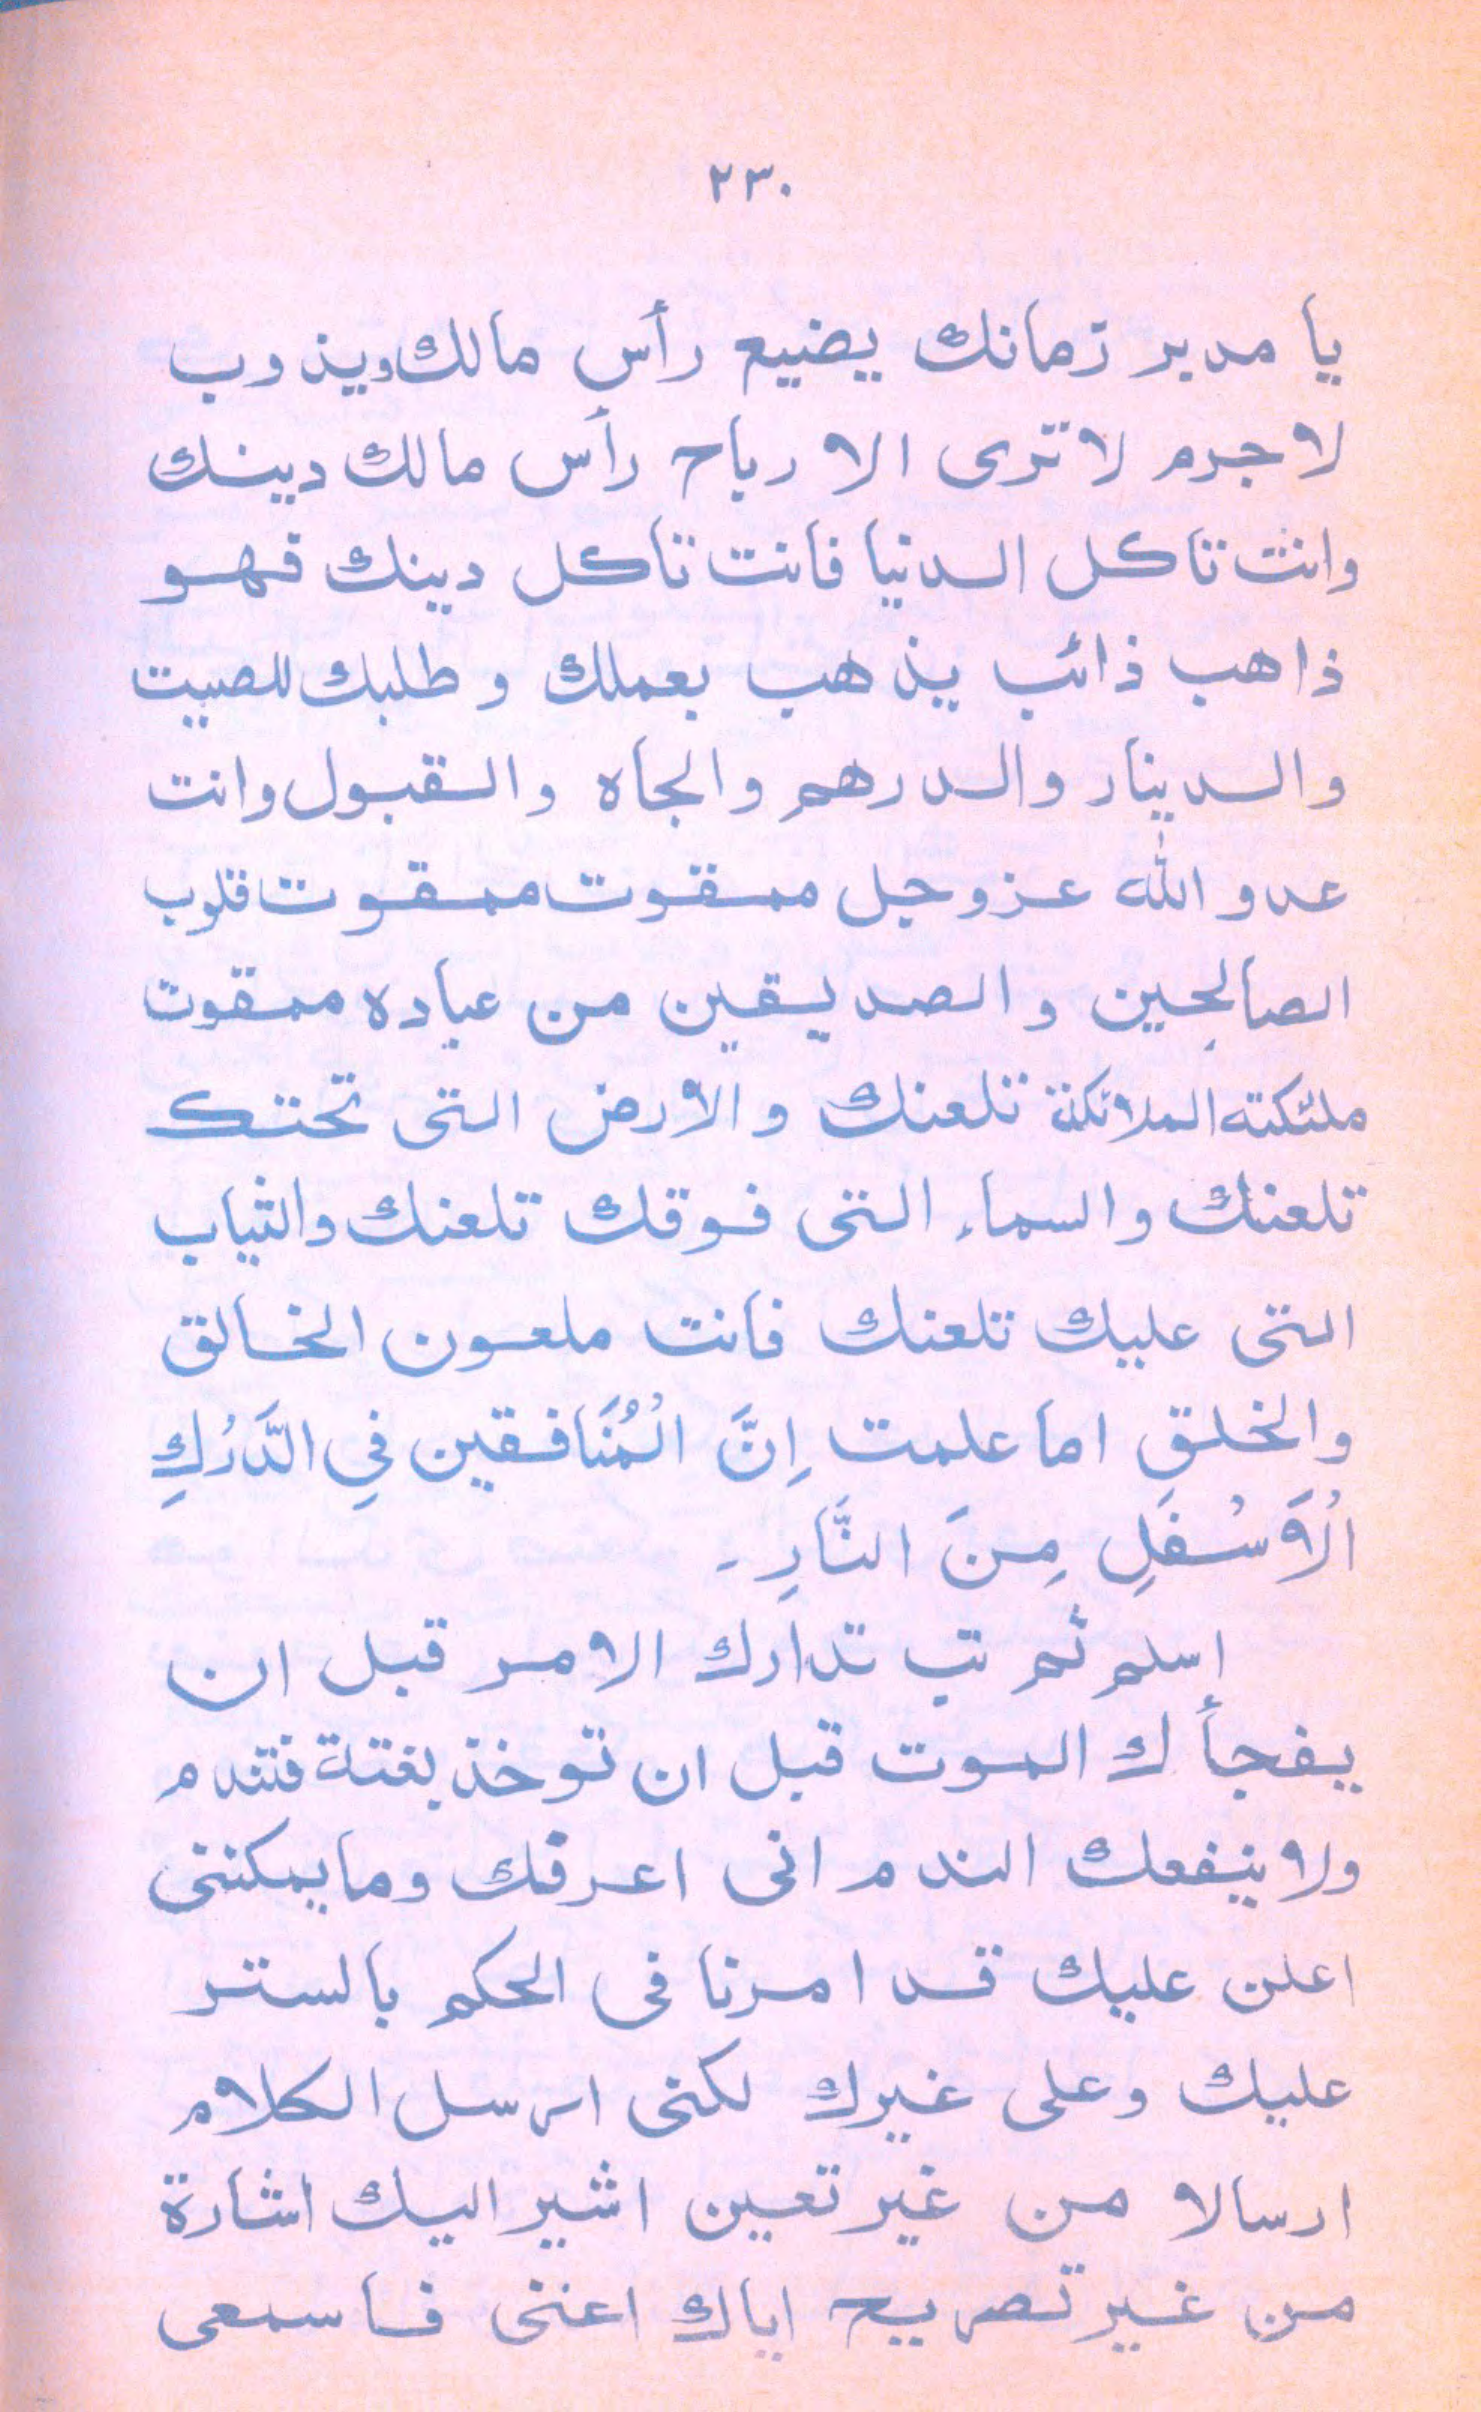 ٢٣٠
يا مدبر زمانك يضيع رأس مالك ويذوب
لاجرم لا ترى الا رباح رأس مالك دينك
وانت تاكل الدنيا فانت تاكل دينك فهو
ذاهب ذائب يذهب بعملك وطلبك للصيت
والدينار والدرهم والجاه والقبول وانت
عدو الله عزوجل ممقوت ممقوت قلوب
الصالحين والصديقين من عباده ممقوت
ملئكته الملائكة تلعنك والارض التى تحتك
تلعنك والسماء التى فوقك تلعنك والثياب
التى عليك تلعنك فانت ملعون الخالق
والخلق اما علمت اِنَّ الْمُنَافقين فِي الدَّرْكِ
الْاَسْفَلِ مِنَ النَّارِ ـ
اسلم ثم تب تدارك الامر قبل ان
يفجأك الموت قبل ان توخذ بغتة فتندم
ولا ينفعك الندم انى اعرفك وما يمكننى
اعلن عليك قد امرنا فى الحكم بالستر
عليك وعلى غيرك لكنى ارسل الكلام
ارسالا من غير تعين اشير اليك اشارة
من غير تصريح اياك اعنى فاسمعى